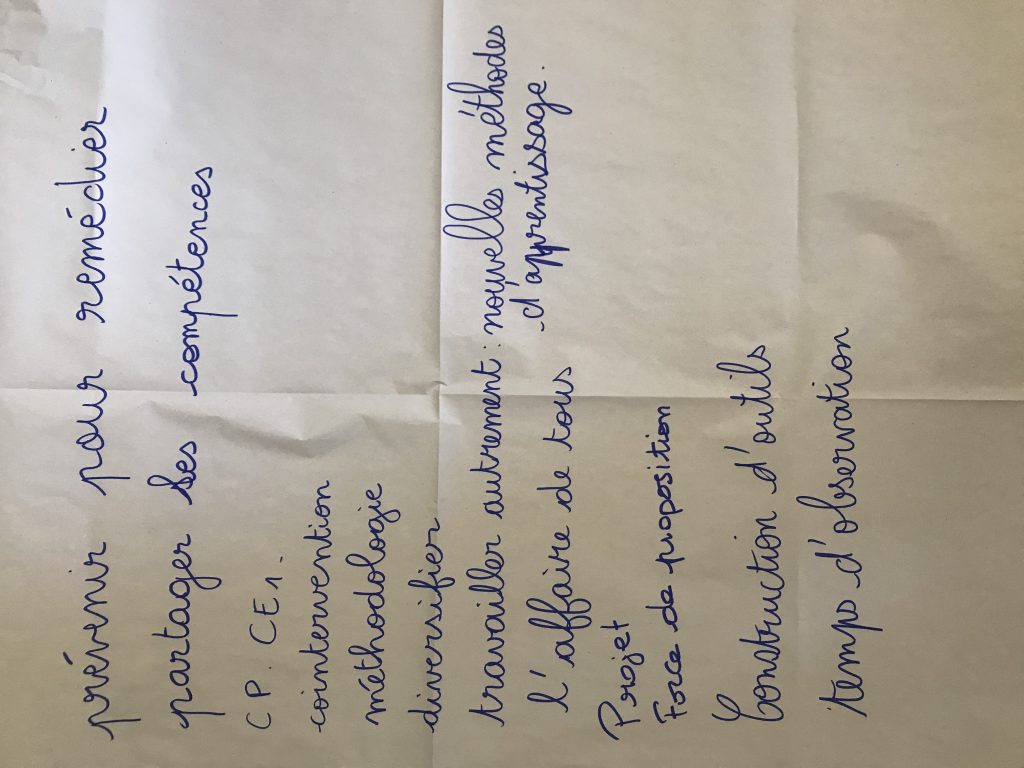 prévenir pour remédier
partager ses compétences
CP. CE1.
cointervention
méthodologie
diversifier
travailler autrement : nouvelles méthodes
d'apprentissage.
l'affaire de tous
Projet
Force de proposition
Construction d'outils
temps d'observation